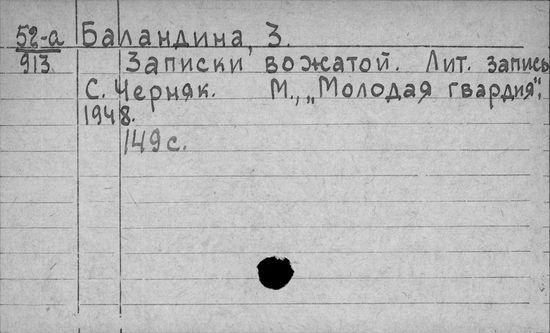 52-а Баландина, З.
913 Записки вожатой. Лит. запись
С. Черняк. М., „Молодая гвардия",
1948.
149 с.